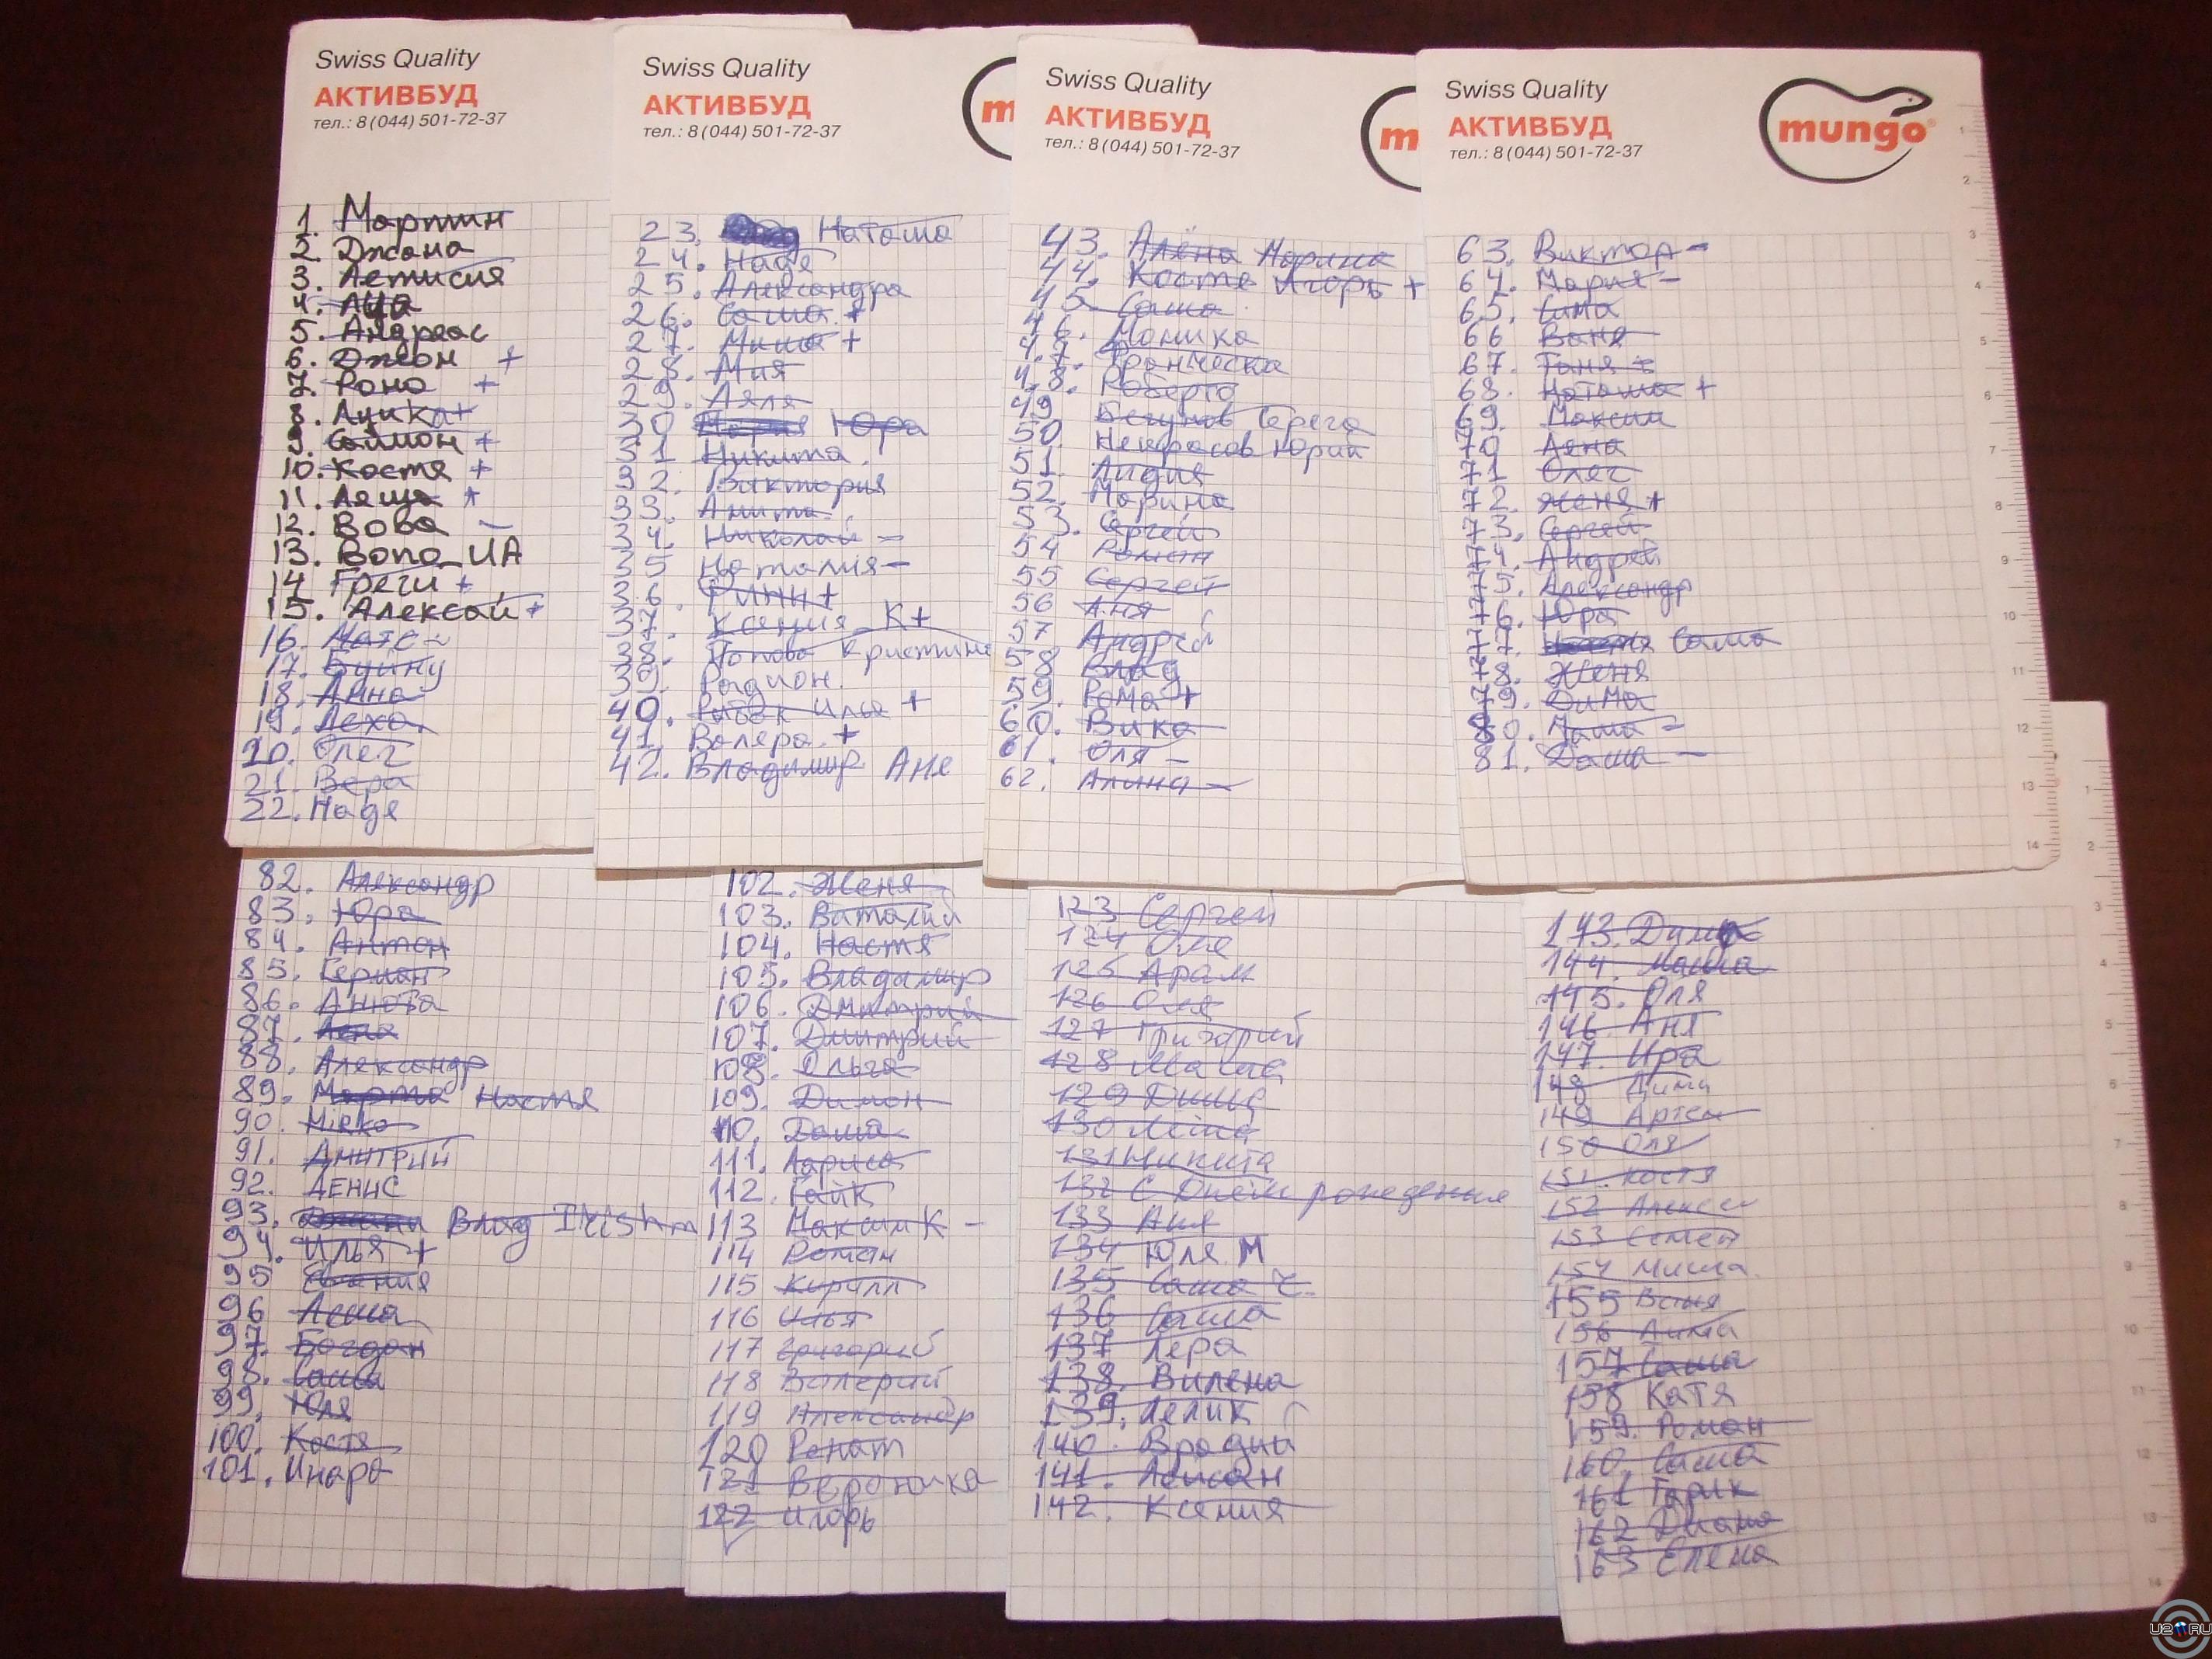 Swiss Quality
АКТИВБУД
тел.: 8 (044) 501-72-37
1. Мартин
2. Джана
3. Летисия
4.
5. Андреас
6. Джон +
7. Рона +
8. Луика+
9. Саймон +
10. Костя +
11. Леша +
12. Вова -
13. Bono_UA
14 Греги +
15. Алексей +
16. Матс
17.
18. Анна
19. Леха
20. Олег
21. Вера
22. Надя
Swiss Quality
АКТИВБУД
тел.: 8 (044) 501-72-37
m
23. Наташа
24. Надя
25. Александра
26. Саша +
27. Миша +
28. Мия
29. Ляля
30 Юра
31 Никита
32. Виктория
33. Анита
34. Николай -
35 Наталия-
36.
37. Ксения К+
38. Попова Кристина
39. Радион
40. Илья +
41. Валера. +
42. Владимир Аня
Swiss Quality
АКТИВБУД
тел.: 8 (044) 501-72-37
m
43. Алёна Марина
44. Костя Игорь +
45. Саша
46. Моника
47. Франческа
48. Роберто
49. Бегунов Серега
50. Некрасов Юрий
51. Лидия
52. Марина
53. Сергей
54 Роман
55 Сергей
56 Аня
57 Андрей
58 Влад
59. Рома +
60. Вика
61. Оля -
62. Алина -
Swiss Quality
АКТИВБУД
тел.: 8 (044) 501-72-37
mungo
63. Виктор -
64. Мария -
65.
66 Ваня
67. Таня +
68. Наташа +
69. Максим
70 Лена
71 Олег
72. Женя +
73. Сергей
74. Андрей
75. Александр
76. Юра
77. Саша
78. Женя
79. Дима
80. Маша -
81. Даша -
82. Александр
83. Юра
84. Антон
85. Герман
86. Анюта
87. Лена
88. Александр
89. Марта Настя
90. Mirko
91. Дмитрий
92. Денис
93. Влад Irishm
94. Илья +
95 Евгения
96 Леша
97. Богдан
98. Саша
99. Юля
100. Костя
101. Инара
102. Женя
103. Виталий
104. Настя
105. Владимир
106. Дмитрий
107. Дмитрий
108. Ольга
109. Димон
110. Даша
111. Лариса
112. Гайк
113 Максим К -
114 Роман
115 Кирилл
116 Илья
117 Григорий
118 Валерий
119 Александр
120 Ренат
121 Вероника
122 Игорь
123 Сергей
124 Оля
125 Арам
126 Оля
127 Григорий
128
129 Дима
130
131 Никита
132 С Днём рождения
133 Аня
134 Юля М
135 Саша Ч.
136 Саша
137 Лера
138. Вилена
139. Лелик
140.
141.
142. Ксения
143. Дима
144. Маша
145. Оля
146. Аня
147. Ира
148 Дима
149 Артем
150 Оля
151. Костя
152 Алексей
153 Семен
154 Миша
155 Ваня
156
157 Саша
158 Катя
159. Роман
160. Саша
161 Гарик
162 Диана
163 Елена
1
2
3
4
5
6
7
8
9
10
11
12
13
14
1
2
3
4
5
6
7
8
9
10
11
12
13
14
U2.RU